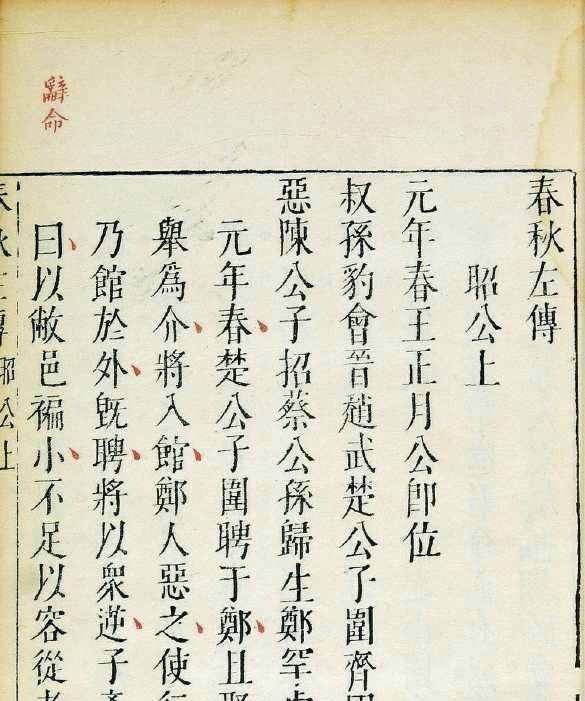 春秋左傳
昭公上
元年春王正月公卽位
叔孫豹會晉趙武楚公子圍齊
惡陳公子招蔡公孫歸生鄭罕
元年春楚公子圍聘于鄭且
舉爲介將入館鄭人惡之使
乃館於外旣聘將以衆逆子
曰以敝邑褊小不足以容從
辭命
秋左傳 昭公上